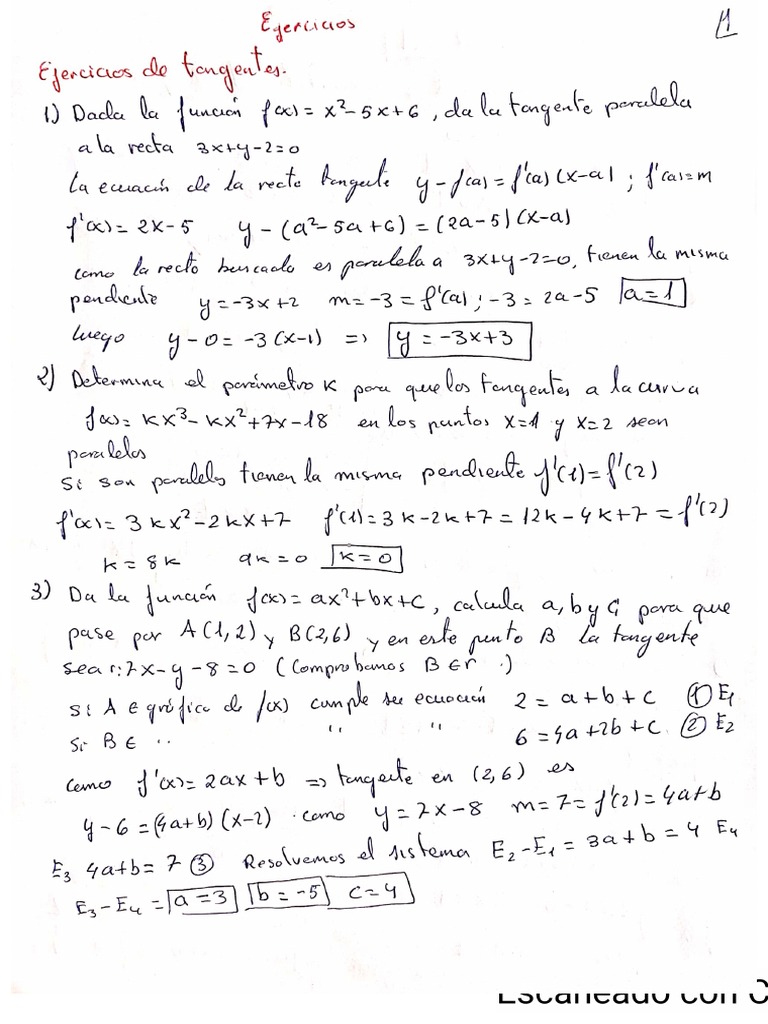 Ejercicios
1
Ejercicios de tangentes.
1) Dada la función f(x) = x²-5x+6, da la tangente paralela
a la recta 3x+y-2=0
La ecuación de la recta tangente y-f(a) = f'(a)(x-a) ; f'(a)=m
f'(x) = 2x-5 y-(a²-5a+6) = (2a-5)(x-a)
como la recta buscada es paralela a 3x+y-2=0, tienen la misma
pendiente y=-3x+2 m=-3=f'(a); -3=2a-5 a=1
luego y-0=-3(x-1) => y=-3x+3
2) Determina el parámetro K para que las tangentes a la curva
f(x)= kx³-kx²+7x-18 en los puntos x=1 y x=2 sean
paralelas
Si son paralelas tienen la misma pendiente f'(1)=f'(2)
f'(x)= 3kx²-2kx+7 f'(1)=3k-2k+7=12k-4k+7=f'(2)
k=8k 9k=0 k=0
3) Da la función f(x)=ax²+bx+c, calcula a, b y c, para que
pase por A(1,2) y B(2,6) y en este punto B la tangente
sea r:7x-y-8=0 (Comprobamos B∈r .)
Si A ∈ gráfica de f(x) cumple su ecuación 2=a+b+c ① E₁
Si B ∈ " " " 6=4a+2b+c. ② E₂
Como f'(x)=2ax+b => tangente en (2,6) es
y-6=(4a+b)(x-2) . como y=7x-8 m=7=f'(2)=4a+b
E₃ 4a+b=7 ③ Resolvemos el sistema E₂-E₁=3a+b=4 E₄
E₃-E₄= a=3 b=-5 c=4
Escaneado con C